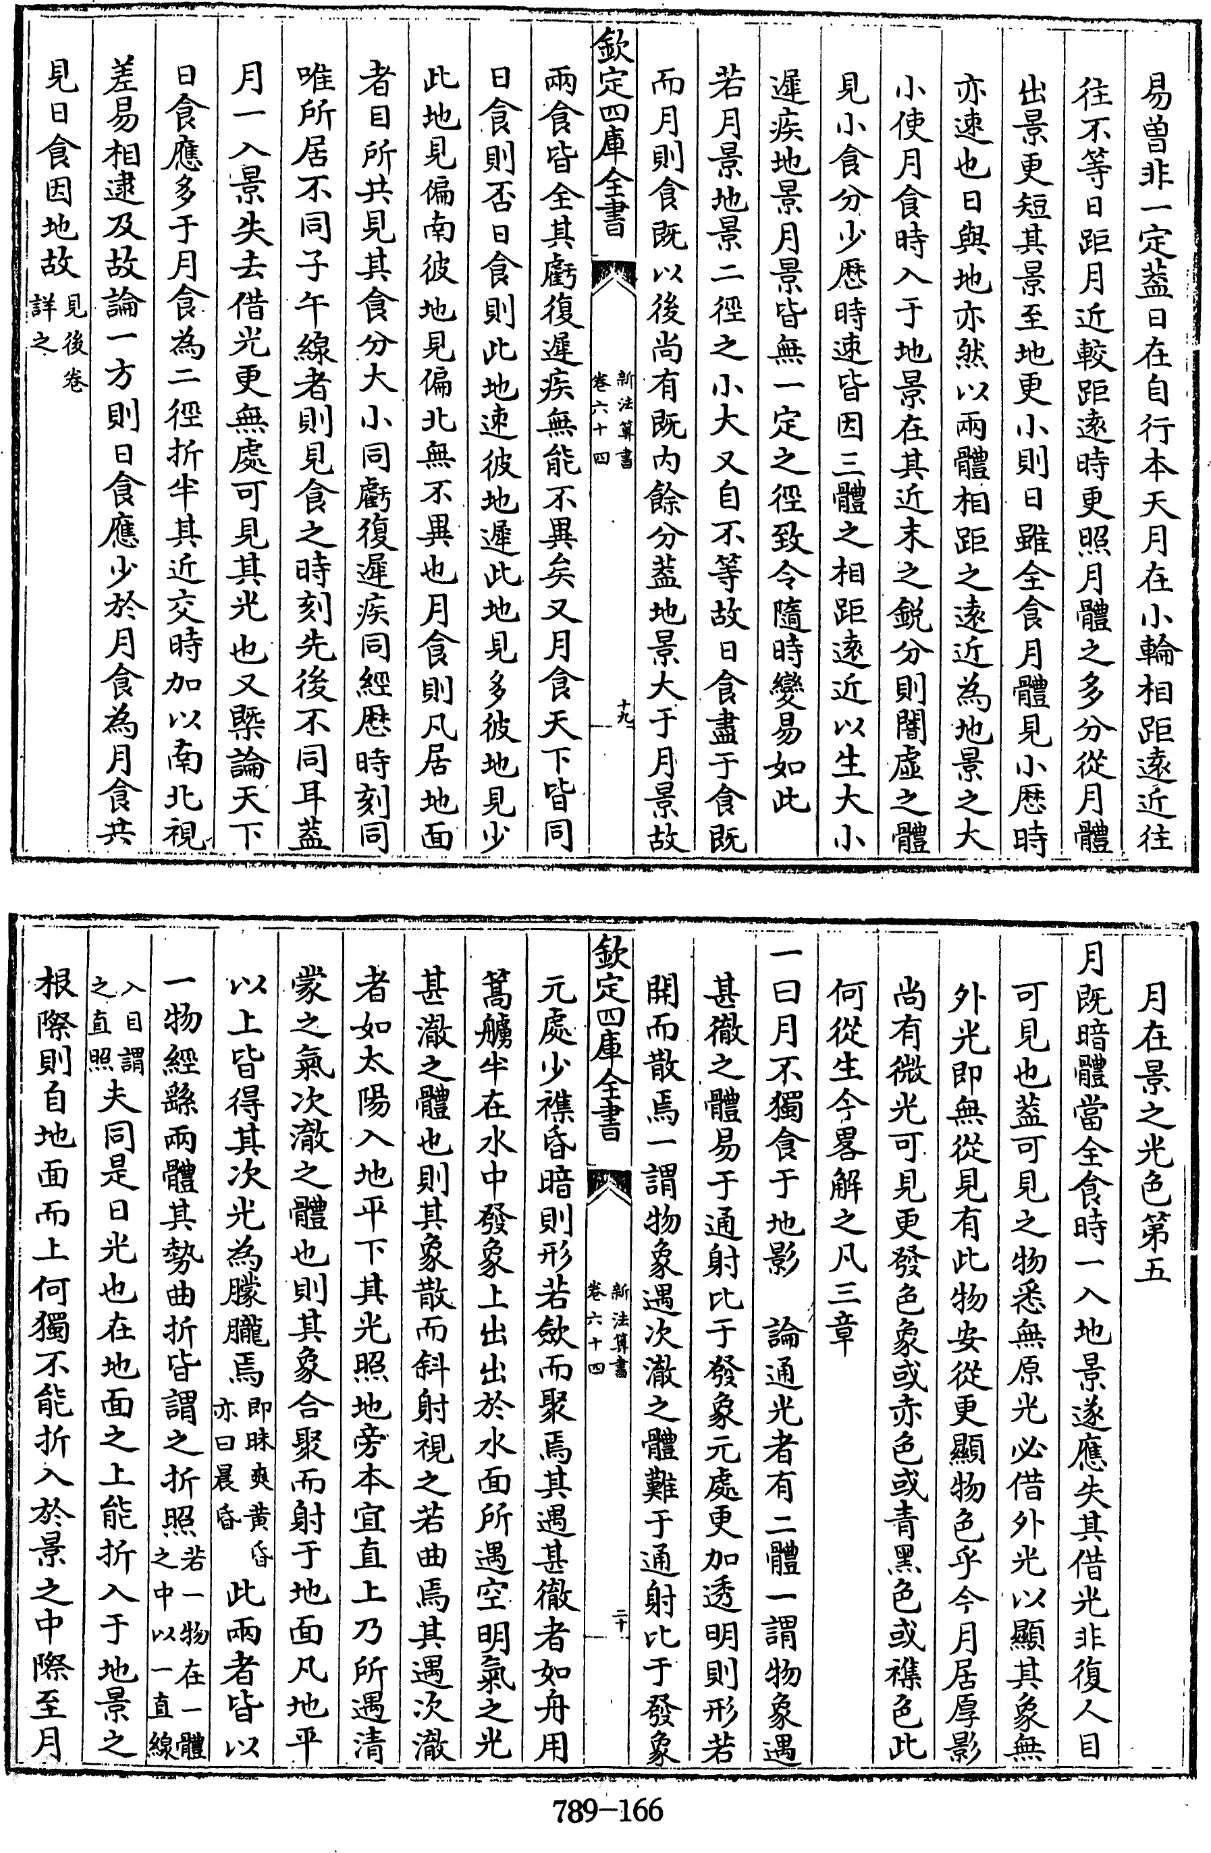 易曽非一定葢日在自行本天月在小輪相距逺近往
往不等日距月近較距逺時更照月體之多分從月體
出景更短其景至地更小則日雖全食月體見小厯時
亦速也日與地亦然以兩體相距之逺近為地景之大
小使月食時入于地景在其近末之鋭分則闇虚之體
見小食分少厯時速皆因三體之相距逺近以生大小
遲疾地景月景皆無一定之徑致令隨時變易如此
若月景地景二徑之小大又自不等故日食盡于食既
而月則食既以後尚有既内餘分葢地景大于月景故
欽定四庫全書
新法算書
卷六十四
十九
兩食皆全其虧復遲疾無能不異矣又月食天下皆同
日食則否日食則此地速彼地遲此地見多彼地見少
此地見偏南彼地見偏北無不異也月食則凡居地面
者目所共見其食分大小同虧復遲疾同經厯時刻同
唯所居不同子午線者則見食之時刻先後不同耳葢
月一入景失去借光更無處可見其光也又槩論天下
日食應多于月食為二徑折半其近交時加以南北視
差易相逮及故論一方則日食應少於月食為月食共
見日食因地故見後卷
詳之
月在景之光色第五
月既暗體當全食時一入地景遂應失其借光非復人目
可見也葢可見之物悉無原光必借外光以顯其象無
外光即無從見有此物安從更顯物色乎今月居厚影
尚有微光可見更發色象或赤色或青黑色或襍色此
何從生今畧解之凡三章
一曰月不獨食于地影 論通光者有二體一謂物象遇
甚徹之體易于通射比于發象元處更加透明則形若
開而散焉一謂物象遇次澈之體難于通射比于發象
欽定四庫全書
新法算書
卷六十四
二十
元處少襍昏暗則形若斂而聚焉其遇甚徹者如舟用
篙艣半在水中發象上出出於水面所遇空明氣之光
甚澈之體也則其象散而斜射視之若曲焉其遇次澈
者如太陽入地平下其光照地旁本宜直上乃所遇清
蒙之氣次澈之體也則其象合聚而射于地面凡地平
以上皆得其次光為朦朧焉即昧爽黄昏
亦曰晨昏此兩者皆以
一物經繇兩體其勢曲折皆謂之折照若一物在一體
之中以一直線
入目謂
之直照夫同是日光也在地面之上能折入于地景之
根際則自地面而上何獨不能折入於景之中際至月
789-166